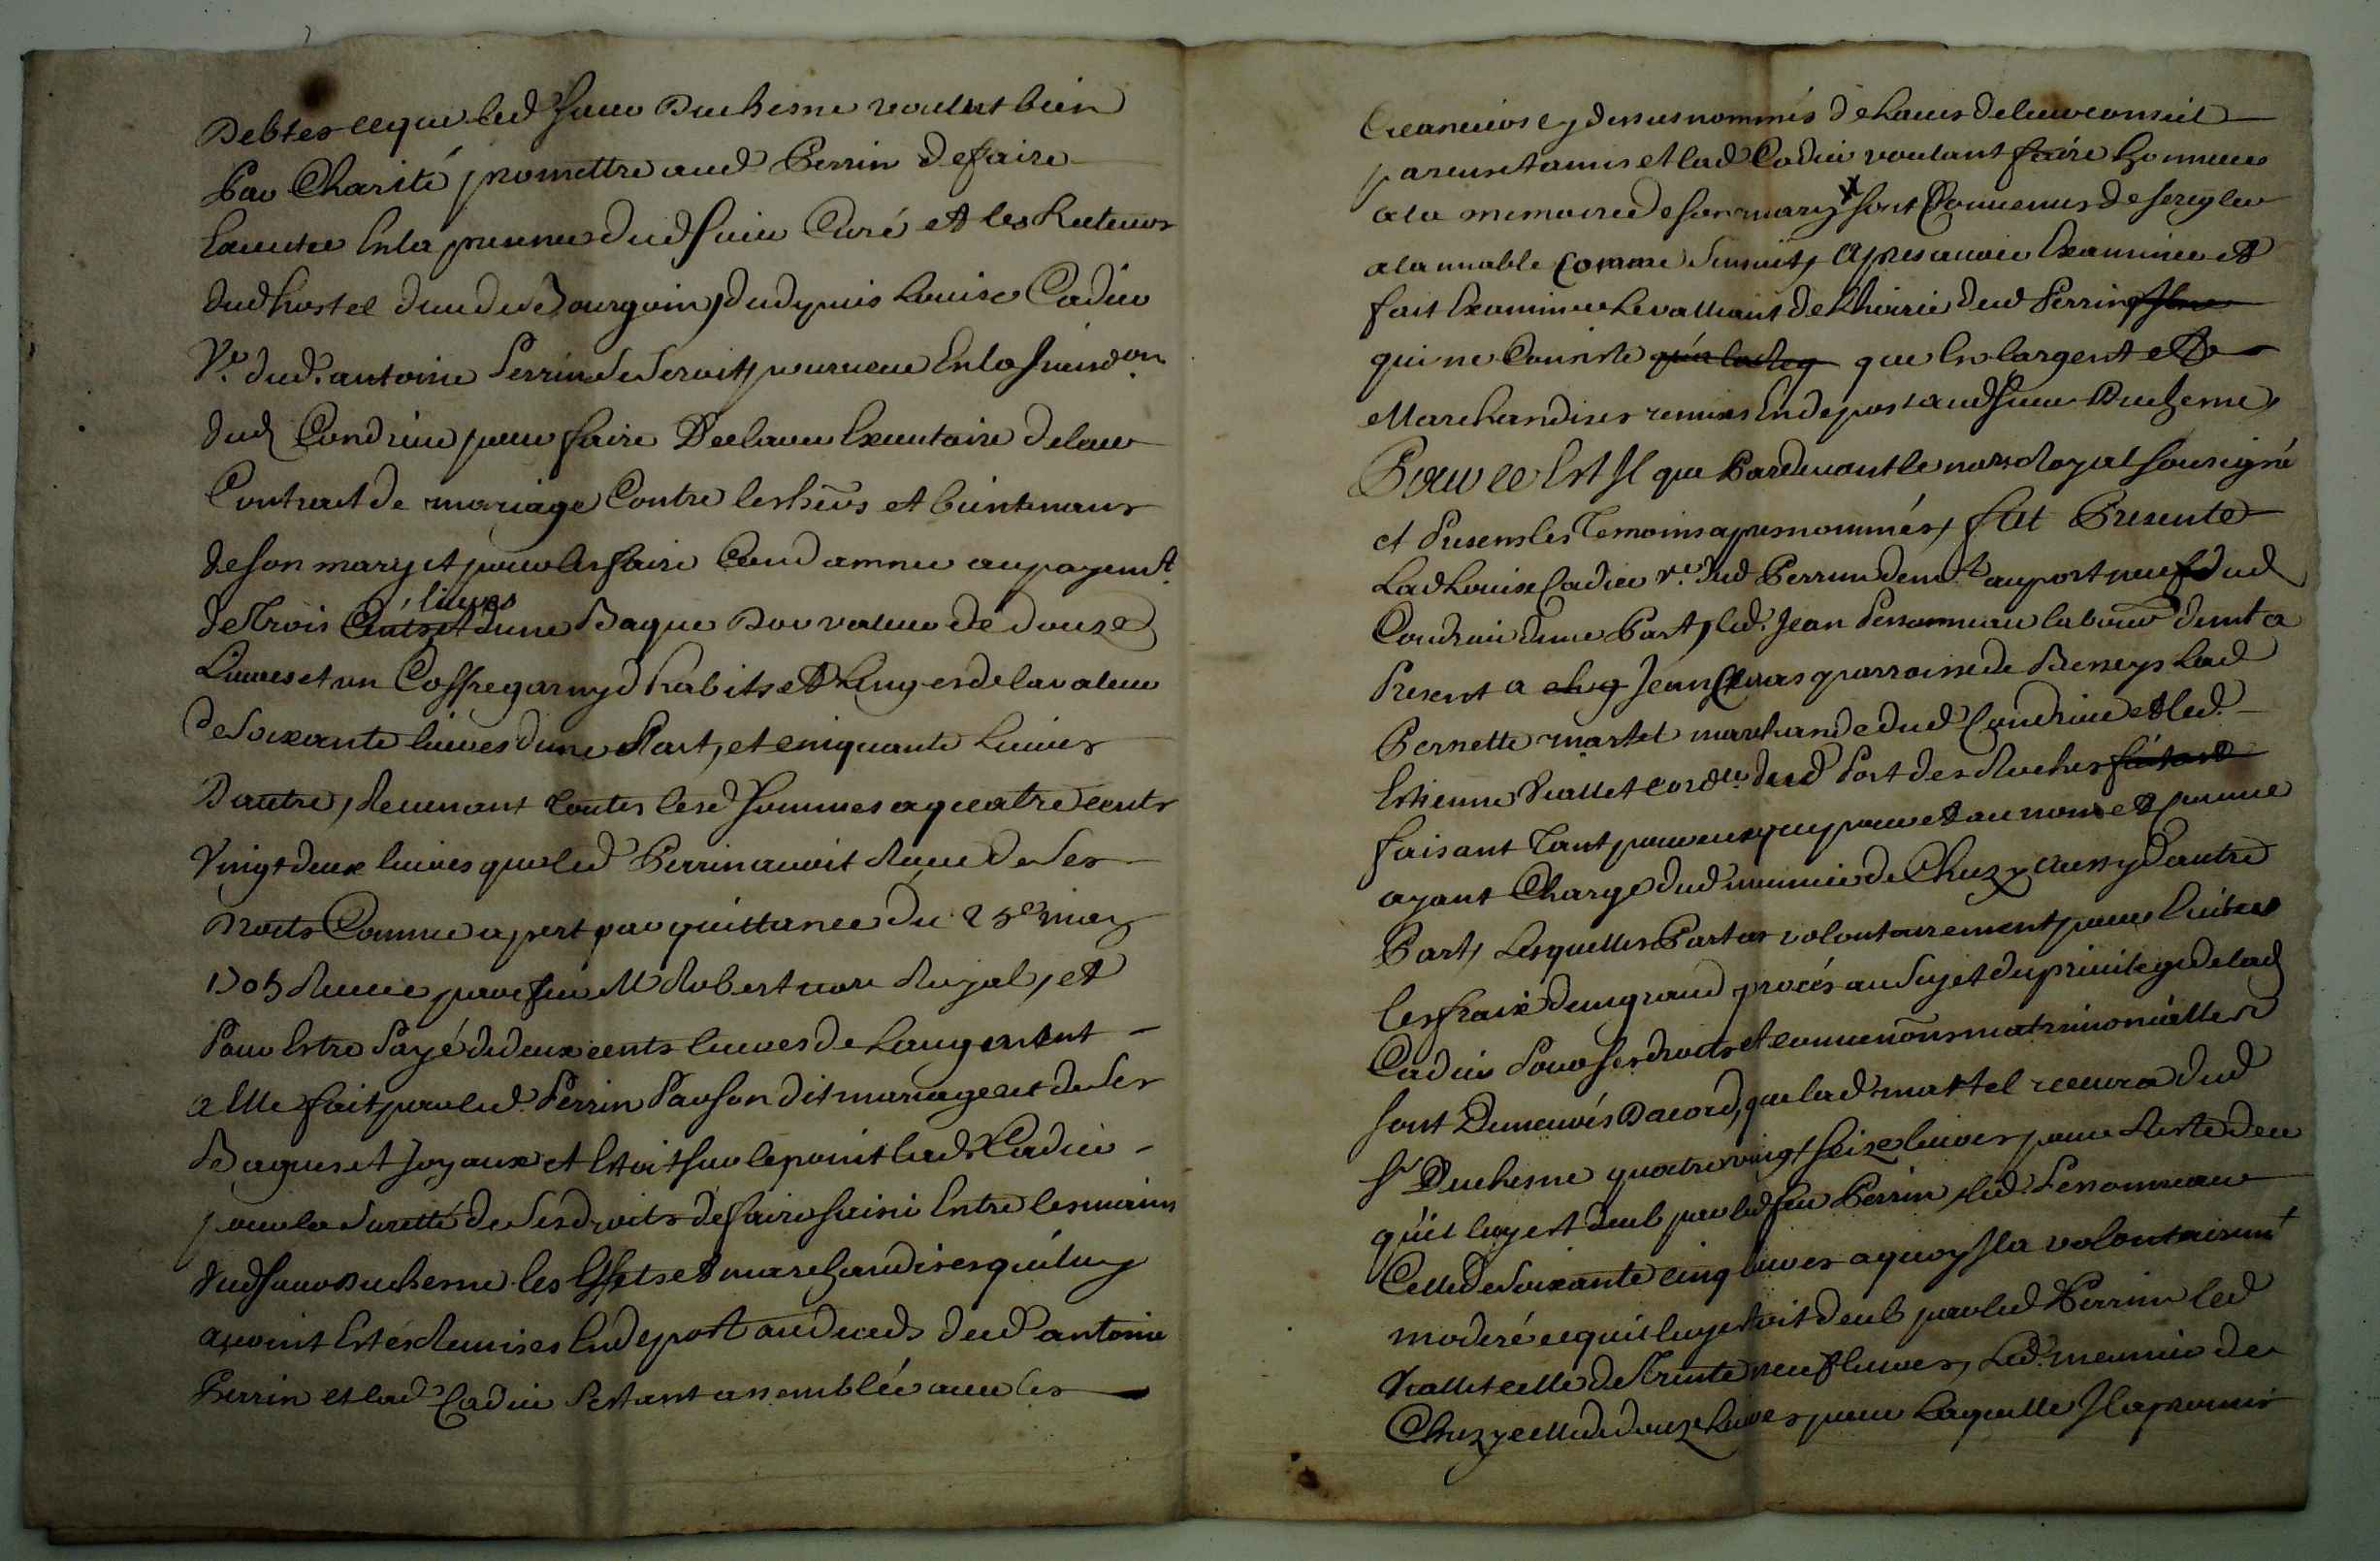 Debtes ce que led Sieur Duchesne voulut bien
Par Charité promettre aud Perrin de faire
Executer En la presence dud Sieur Curé et les Recteurs
dud hostel dieu de Bourgoin, du depuis Louise Cadier
Ve. dud. antoine Perrin Se Seroit pourveue En la Jurisdon
dud Condrieu pour faire Declarer Executoire Son
Contract de mariage Contre les heirs et bientenans
de Son mary et pour les faire Condamner au payemt
de Trois Cents livres et d'une Bague D'or valeur de douze
Livres et un Coffre garny d habits et Linges de la valeur
de Soixante livres d'une Part, et cinquante Livres
D autre, Revenant toutes lesd Sommes a quatre cents
Vingt deux livres que led Perrin avoit Receu de Ses
Droits Comme apert par quittance du 25e may
1705 Receue par feu Me Robert nore Royal, et
Pour Estre Payé de deux cents livres de Laugment
a Elle fait par led. Perrin Par Son dit mariage et de Ses
Bagues et Joyaux et Estoit Sur le point lad. Cadier
pour la Suretté de Ses droits de faire Saisir Entre les mains
dud Sieur Duchesne les Effets et marchandises qui luy
avoint Estés Remises En depost au deceds dud antoine
Perrin et lad Cadier S'estant assemblée avec les
Creanciers cy dessus nommés de L'avis de leur conseil
parens et amis et lad Cadier voulant faire honneur
a la memoire de Son mary X Sont Convenus de se regler
a lamiable Comme S'ensuit, Apres avoir Examiner et
fait Examiner Le vallliant de L'hoirie dud Perrin
qui ne Consiste que En largent et
Marchandises remises En depost aud Sieur Duchesne,
Pour ce Est Il que Pardevant le nore Royal Soussigné
et Presens les Temoins apres nommés, fut Presente
Lad Louise Cadier ve. dud Perrin demt au port neuf dud
Condrieu d'une Part, led. Jean Personneau labour demt a
Present a chez Jean paroisse de Reneys Lad
Pernette martel marchande dud Condrieu et led.
Estienne Viallet cordr. dud Port des Roches
faisant Tant pour eux que pour et au nom et Comme
ayant Charge dud meunier de Chuzy aussy d'autre
Part, Lesquelles Parties volontairement pour Eviter
les fraix d'un grand procés au Sujet du privilege de lad
Cadier Pour Ses droits et convenõns matrimonialles
Sont Demeurés Dacord, que lad martel recevra dud
Sr Duchesne quatre vingt Seize livres pour Reste de ce
qu'il luy est deub par led feu Perrin, led. Personneau
Celle de Soixante cinq livres a quoy Il a volontairemt
moderé ce qui luy Estoit deub par led Perrin led
Viallet celle de Trente neuf livres, Led. meunier de
Chuzy celle de douze Livres pour Laquelle Il a promis